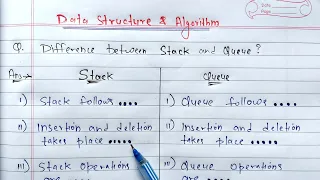 Data Structure & Algorithm
Date
Page
Q. Difference between Stack and Queue?
Ans→ Stack Queue
i) Stack follows .... i) Queue follows ....
ii) Insertion and deletion takes place ..... ii) Insertion and deletion takes place .....
iii) Stack operations are .... iii) Queue operations are ....